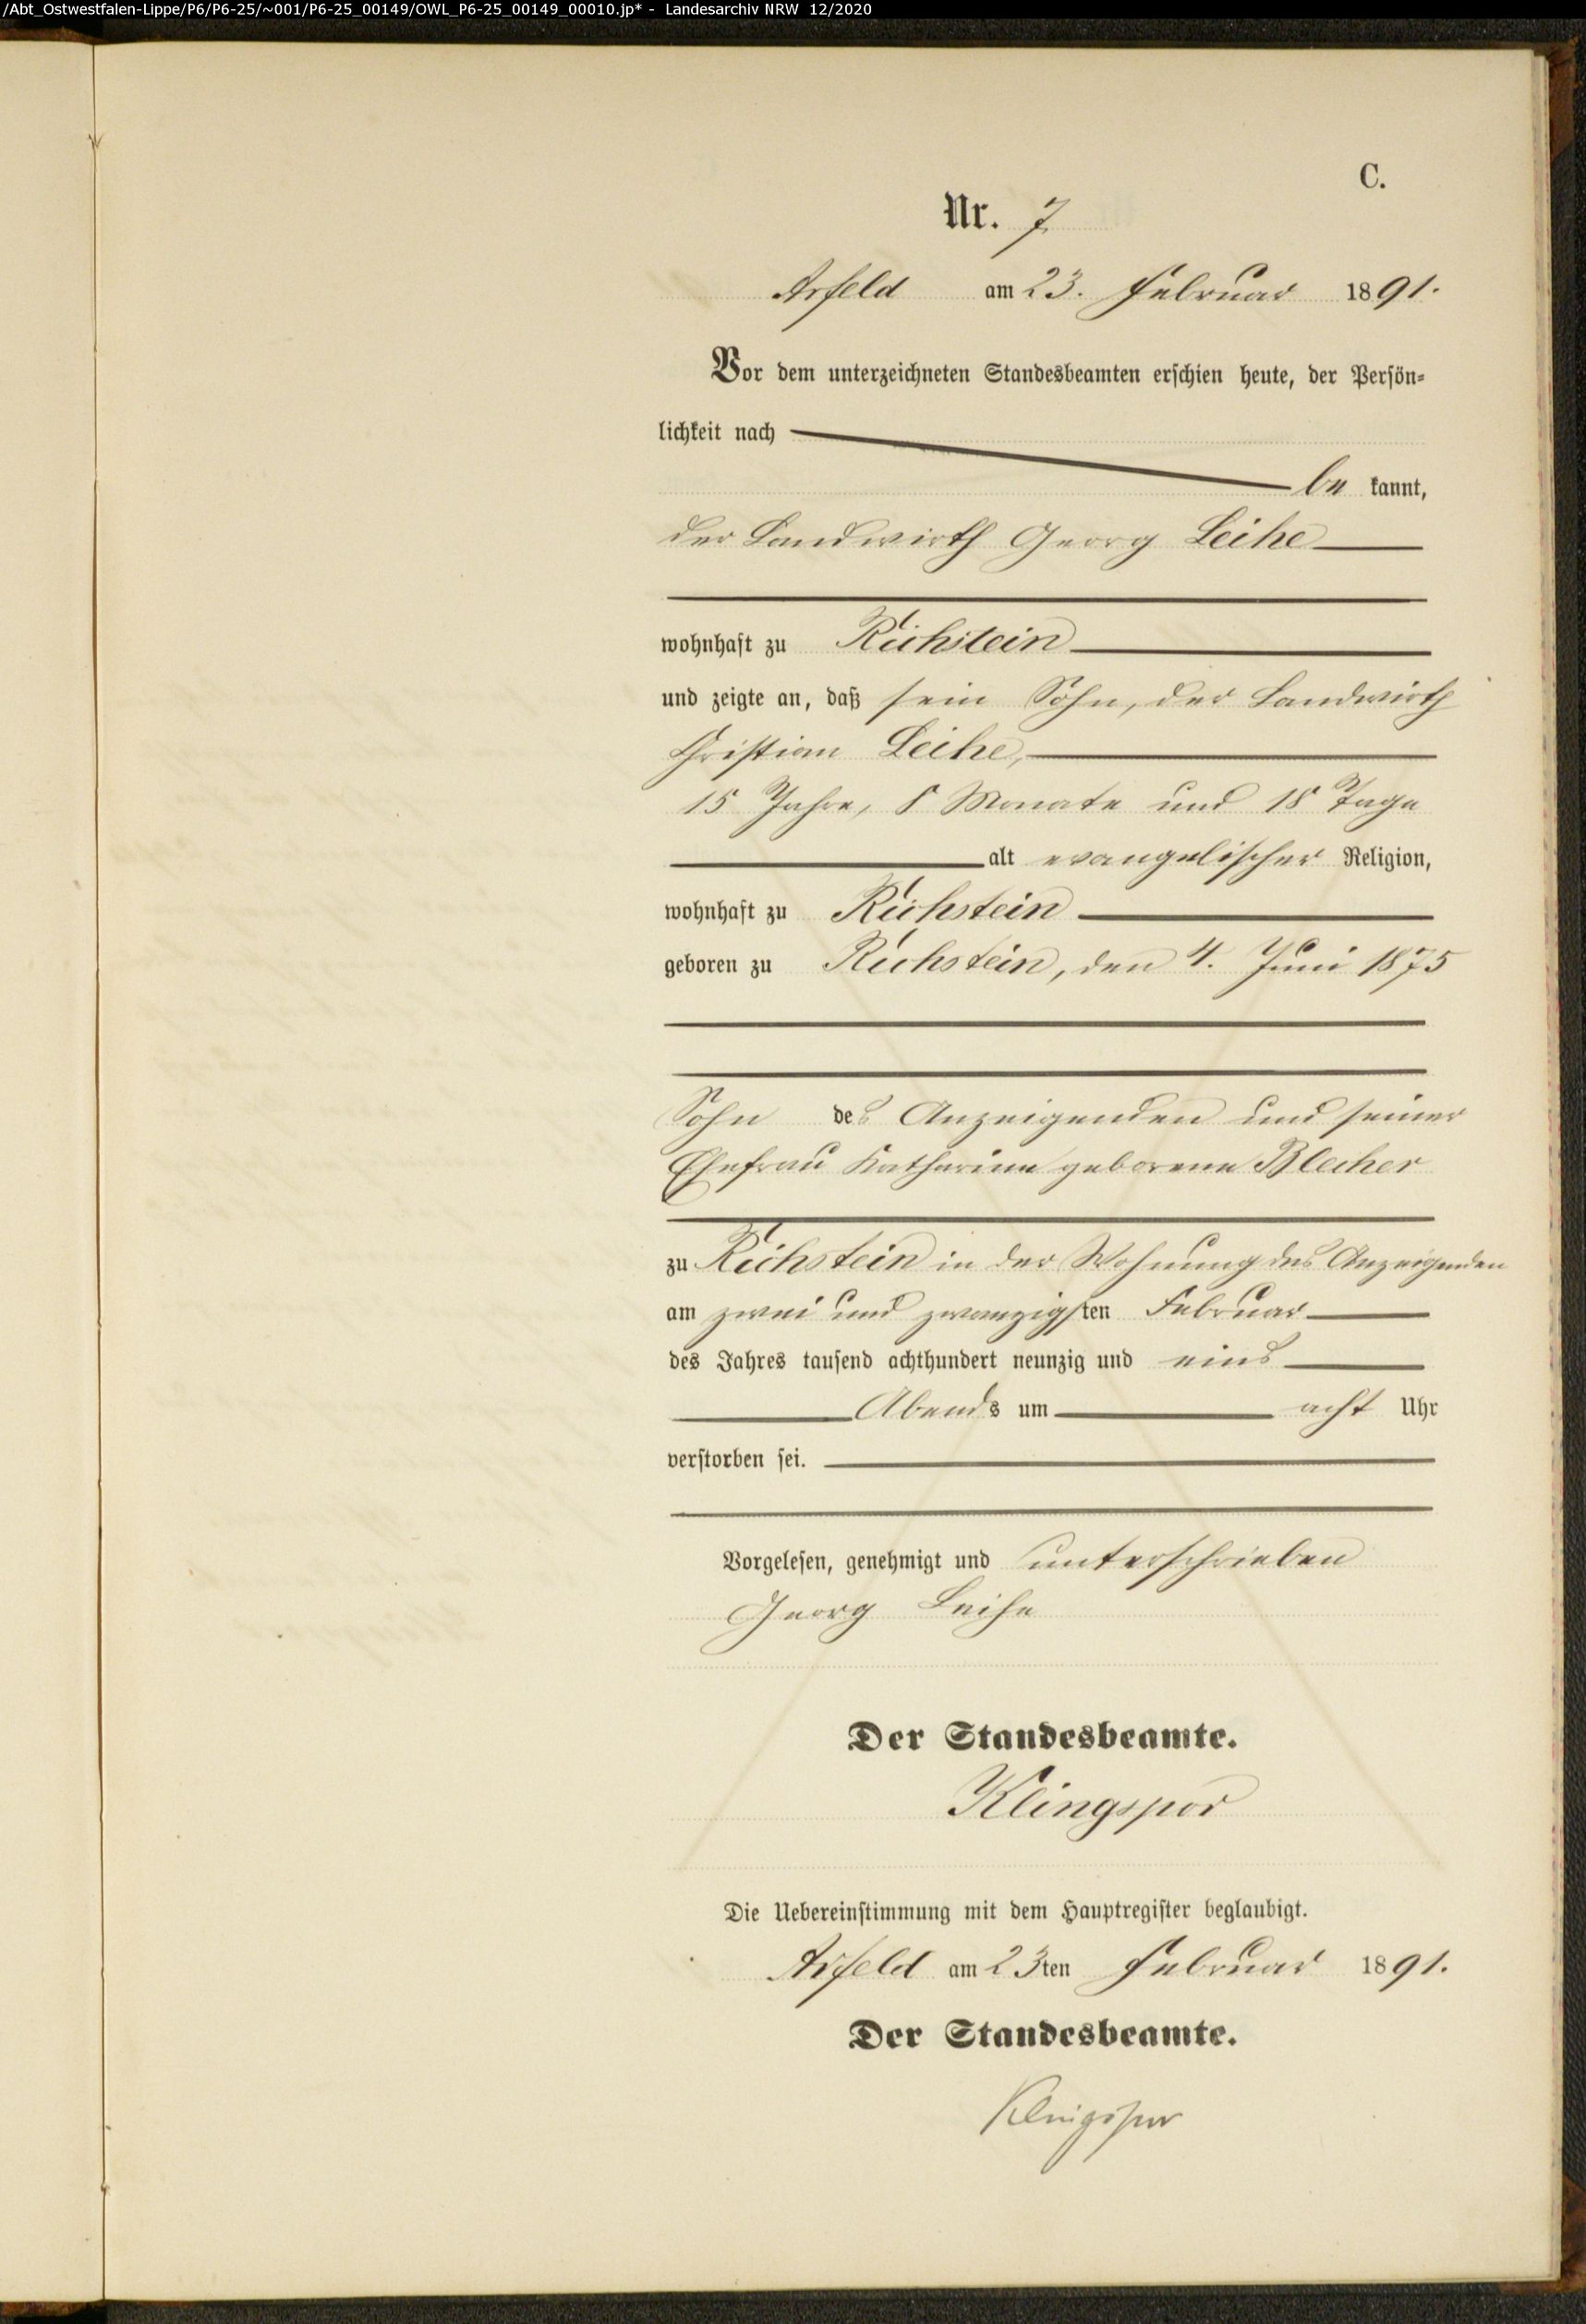 /Abt_Ostwestfalen-Lippe/P6/P6-25/~001/P6-25_00149/OWL_P6-25_00149_00010.jp* - Landesarchiv NRW 12/2020
C.
Nr. 7.
Arfeld am 23. Februar 1891.
Vor dem unterzeichneten Standesbeamten erschien heute, der Persön-
lichkeit nach
be kannt,
der Landwirth Georg Leihe
wohnhaft zu Richstein
und zeigte an, daß sein Sohn, der Landwirth
Christian Leihe,
15 Jahre, 8 Monate und 18 Tage
alt evangelischer Religion,
wohnhaft zu Richstein
geboren zu Richstein, den 4. Juni 1875
Sohn des Anzeigenden und seiner
Ehefrau Katharine geborene Blecher
zu Richstein in der Wohnung des Anzeigenden
am zwei und zwanzigsten Februar
des Jahres tausend achthundert neunzig und eins
Abends um acht Uhr
verstorben sei.
Vorgelesen, genehmigt und unterschrieben
Georg Leihe
Der Standesbeamte.
Klingspor
Die Uebereinstimmung mit dem Hauptregister beglaubigt.
Arfeld am 23ten Februar 1891.
Der Standesbeamte.
Klingspor